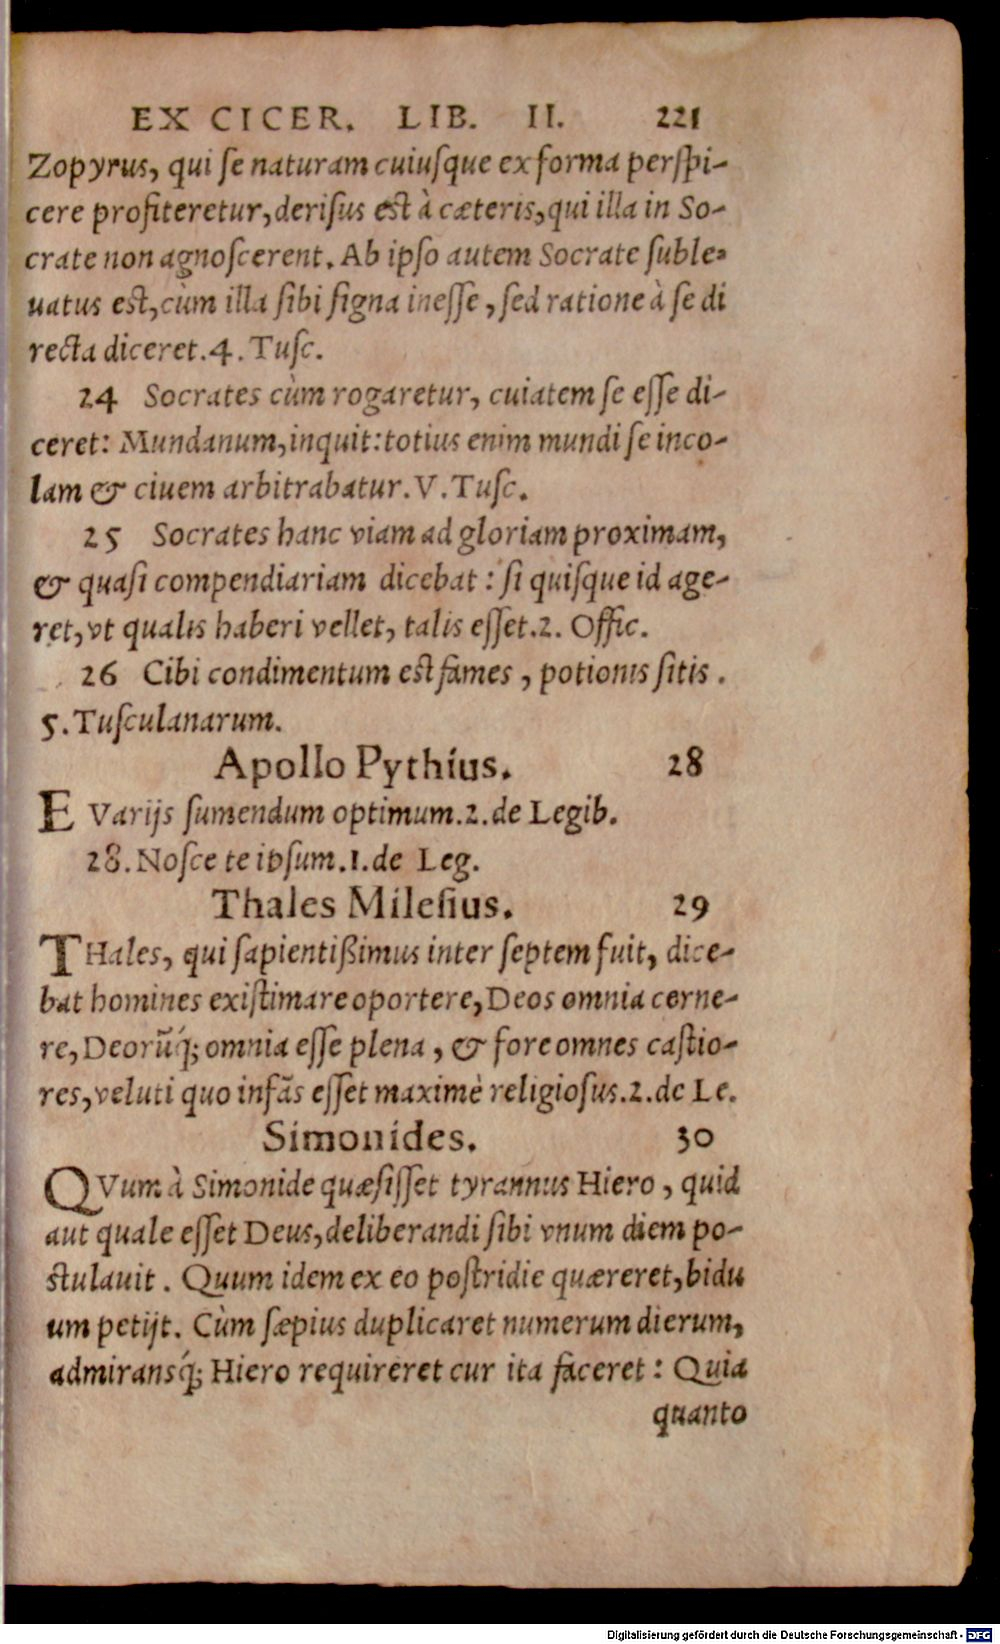 EX CICER. LIB. II. 221
Zopyrus, qui ſe naturam cuiuſque ex forma perſpi-
cere profiteretur, deriſus est à cæteris, qui illa in So-
crate non agnoſcerent. Ab ipſo autem Socrate ſuble-
uatus est, cùm illa ſibi ſigna ineſſe, ſed ratione à ſe di
recta diceret. 4. Tuſc.
24 Socrates cùm rogaretur, cuiatem ſe eſſe di-
ceret: Mundanum, inquit: totius enim mundi ſe inco-
lam & ciuem arbitrabatur. V. Tuſc.
25 Socrates hanc viam ad gloriam proximam,
& quaſi compendiariam dicebat: ſi quiſque id age-
ret, vt qualis haberi vellet, talis eſſet. 2. Offic.
26 Cibi condimentum est fames, potionis ſitis.
5. Tuſculanarum.
Apollo Pythius. 28
E Varijs ſumendum optimum. 2. de Legib.
28. Noſce te ipſum. 1. de Leg.
Thales Mileſius. 29
THales, qui ſapientißimus inter ſeptem fuit, dice-
bat homines exiſtimare oportere, Deos omnia cerne-
re, Deorũq́; omnia eſſe plena, & fore omnes caſtio-
res, veluti quo infãs eſſet maximè religioſus. 2. de Le.
Simonides. 30
QVum à Simonide quæſiſſet tyrannus Hiero, quid
aut quale eſſet Deus, deliberandi ſibi vnum diem po-
stulauit. Quum idem ex eo poſtridie quæreret, bidu
um petijt. Cùm ſæpius duplicaret numerum dierum,
admiransq́; Hiero requireret cur ita faceret: Quia
quanto
Digitalisierung gefördert durch die Deutsche Forschungsgemeinschaft - DFG